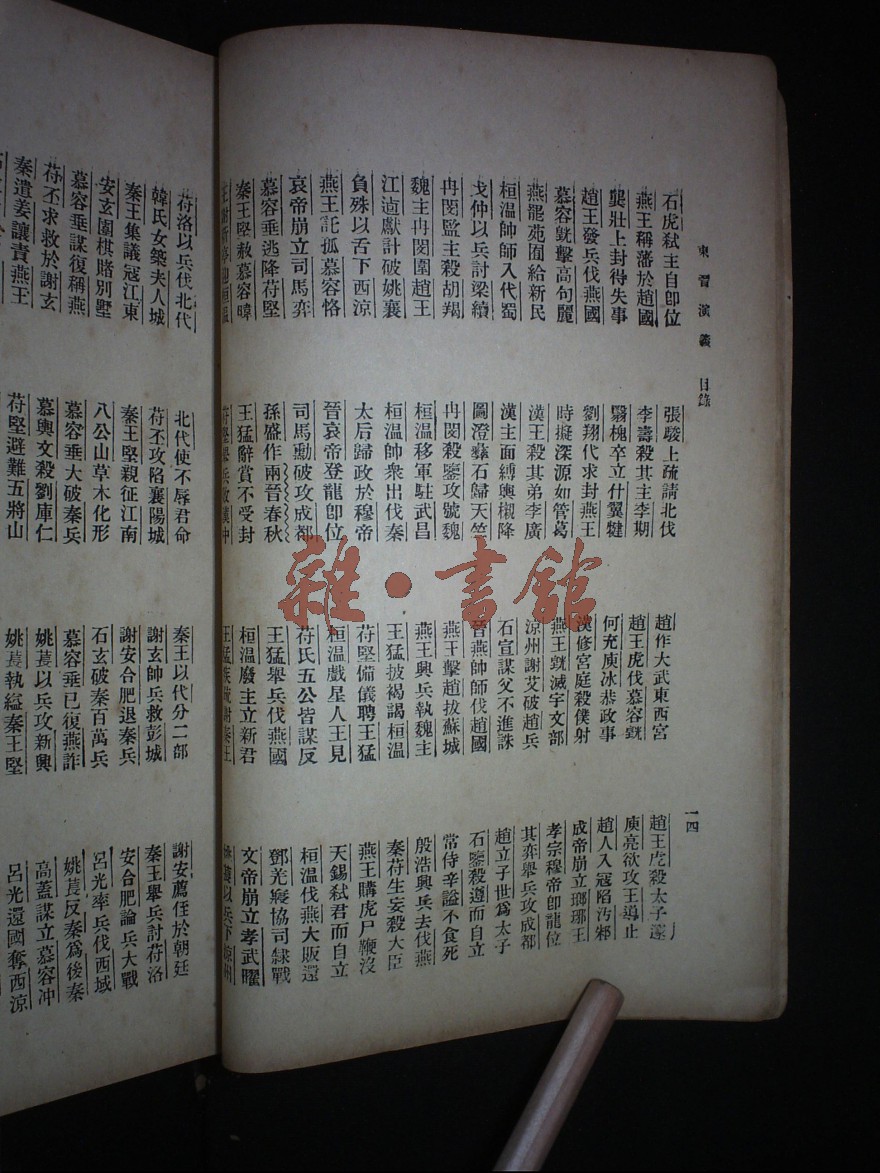 東晉演義 目錄 一四
石虎弒主自卽位 張駿上疏請北伐 趙作大武東西宮 趙王虎殺太子邃
燕王稱藩於趙國 李壽殺其主李期 趙王虎伐慕容皝 庾亮欲攻王導止
龔壯上封得失事 翳槐卒立什翼犍 何充庾冰恭政事 趙人入寇陷汚邾
趙王發兵伐燕國 劉翔代求封燕王 漢修宮庭殺僕射 成帝崩立瑯琊王
慕容皝擊高句麗 時擬深源如管葛 燕王皝滅宇文部 孝宗穆帝卽龍位
燕罷苑囿給新民 漢王殺其弟李廣 涼州謝艾破趙兵 其弈舉兵攻成都
桓温帥師入代蜀 漢主面縛輿櫬降 石宣謀父不進誅 趙立子世爲太子
戈仲以兵討梁續 圖澄彝石歸天竺 晉燕帥師伐趙國 石鑒殺遵而自立
冉閔監主殺胡羯 冉閔殺鑒攻號魏 燕王擊趙拔蘇城 常侍辛謐不食死
魏主冉閔圍趙王 桓温移軍駐武昌 燕王興兵執魏主 殷浩興兵去伐燕
江逌獻計破姚襄 桓温帥衆出伐秦 王猛披褐謁桓温 秦苻生妄殺大臣
負殊以舌下西涼 太后歸政於穆帝 苻堅備儀聘王猛 燕王購虎尸鞭沒
燕王託孤慕容恪 晉哀帝登龍卽位 桓温戲星人王見 天錫弒君而自立
哀帝崩立司馬弈 司馬勳破攻成都 苻氏五公皆謀反 桓温伐燕大敗還
慕容垂逃降苻堅 孫盛作兩晉春秋 王猛舉兵伐燕國 鄧羌寢協司隸戰
秦王堅赦慕容暐 王猛辭賞不受封 桓温廢主立新君 文帝崩立孝武曜
苻堅舉兵攻漢中 王猛疾篤謝秦王 以兵下涼州
苻洛以兵伐北代 北代使不辱君命 秦王以代分二部 謝安薦侄於朝廷
韓氏女築夫人城 苻丕攻陷襄陽城 謝玄帥兵救彭城 秦王舉兵討苻洛
秦王集議寇江東 秦王堅親征江南 謝安合肥退秦兵 安合肥論兵大戰
安玄圍棋賭別墅 八公山草木化形 石玄破秦百萬兵 呂光率兵伐西域
慕容垂謀復稱燕 慕容垂大破秦兵 慕容垂已復燕詐 姚萇反秦爲後秦
苻丕求救於謝玄 慕輿文殺劉庫仁 姚萇以兵攻新興 高蓋謀立慕容冲
秦遣姜讓責燕王 苻堅避難五將山 姚萇執縊秦王堅 呂光還國奪西涼
雜·書館